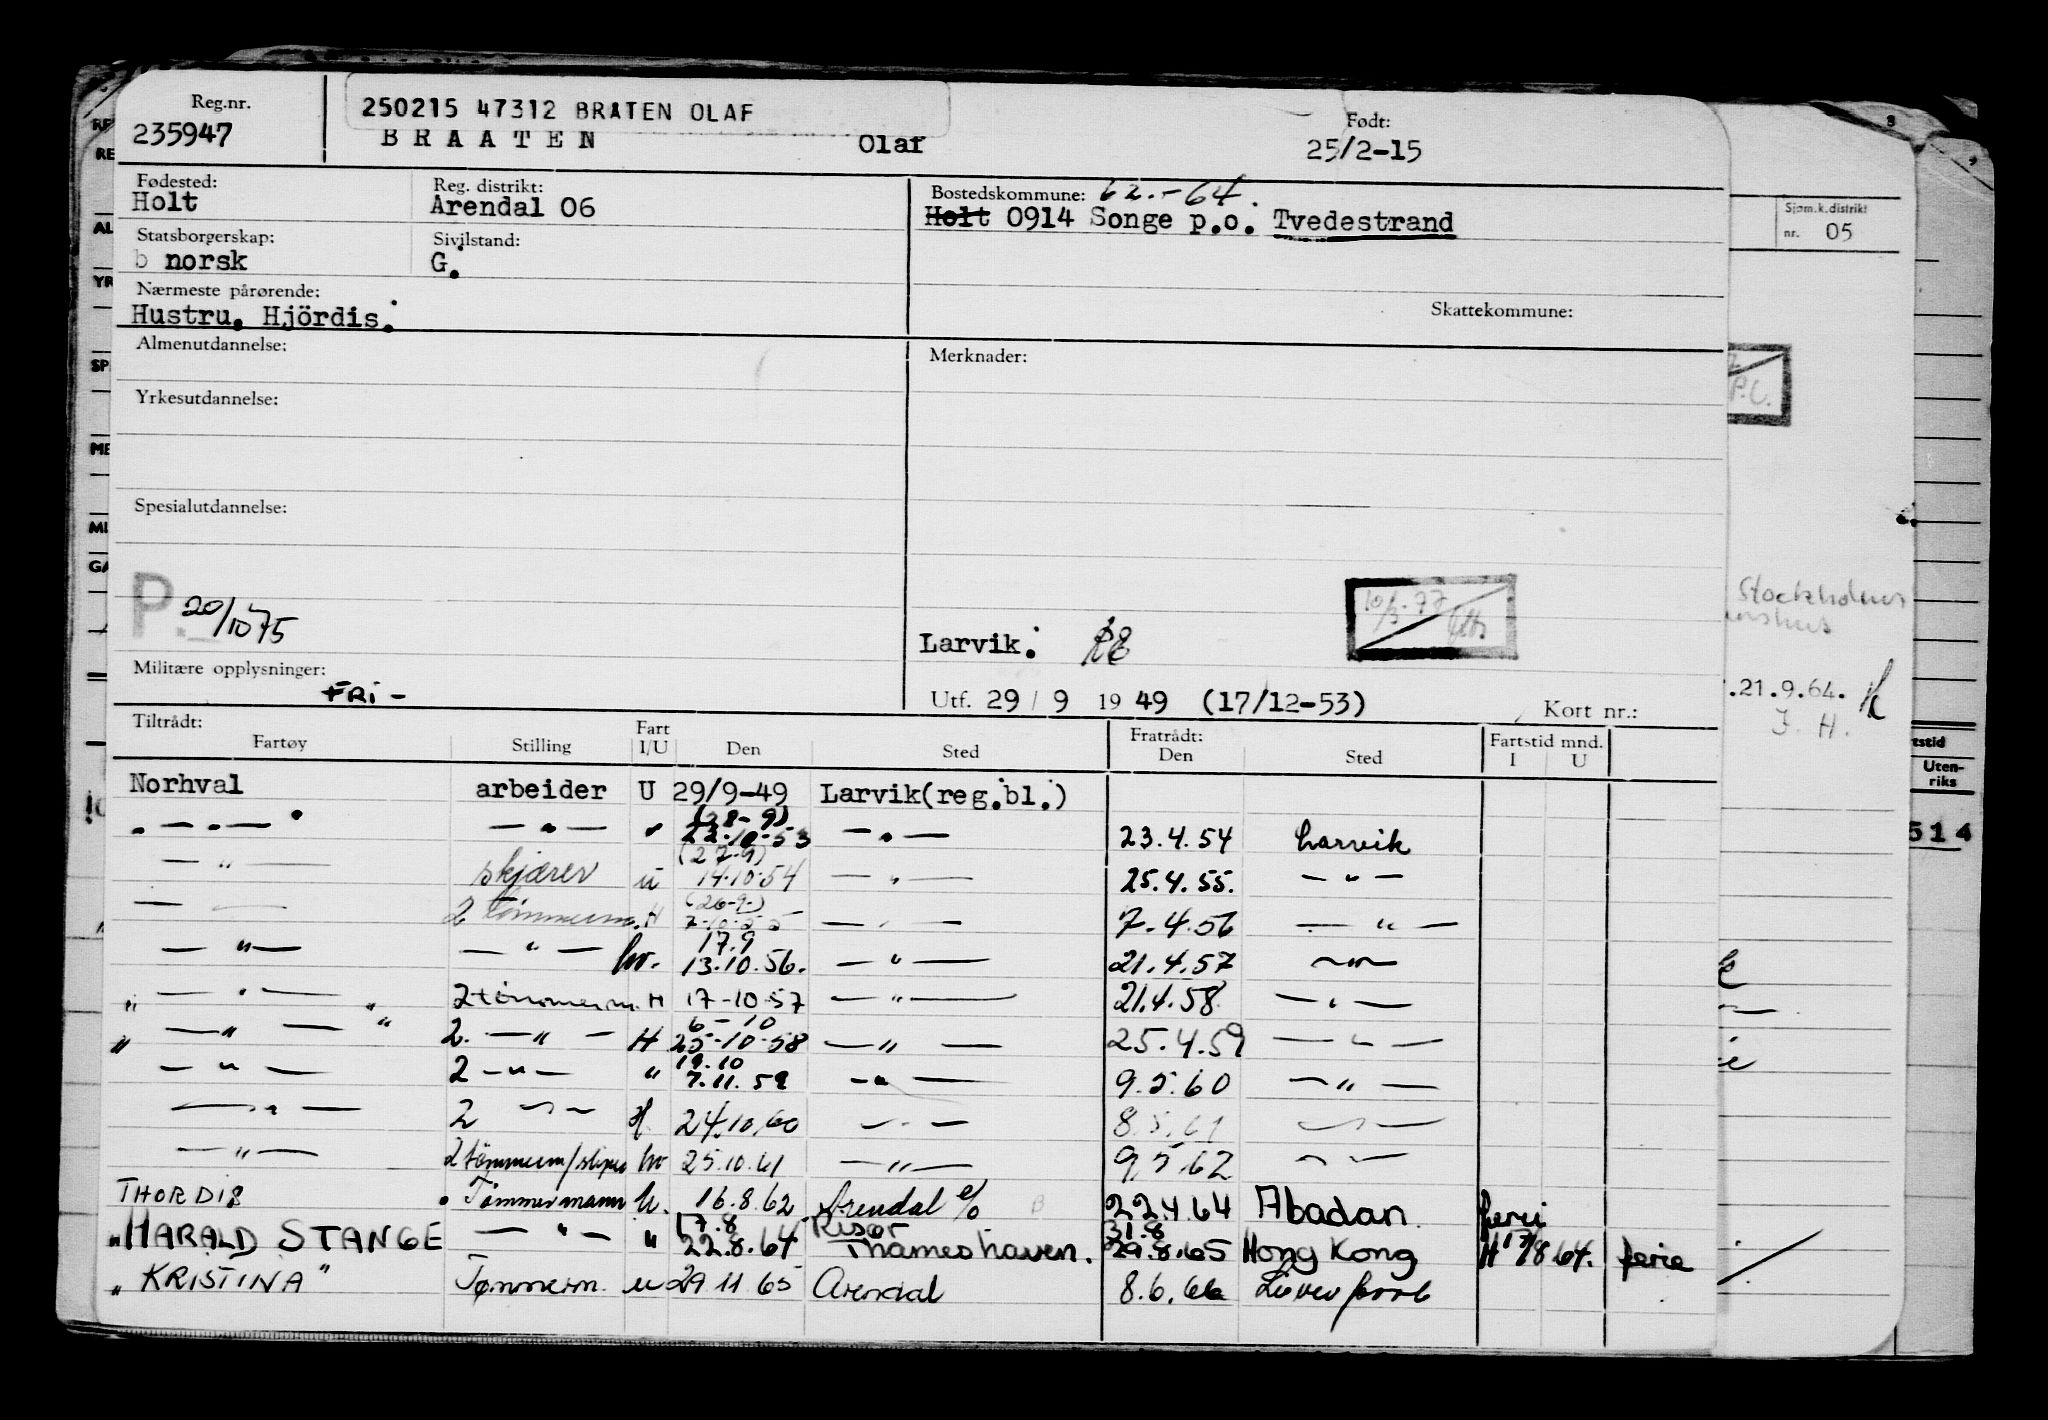 Reg.nr.
235947
250215 47312 BRÅTEN OLAF
BRAATEN Olaf
Født:
25/2-15
Fødested:
Holt
Reg. distrikt:
Arendal 06
Bostedskommune: 62.-64.
Holt 0914 Songe p.o. Tvedestrand
Sjøm.k.distrikt
nr. 05
Statsborgerskap:
b norsk
Sivilstand:
G.
Nærmeste pårørende:
Hustru. Hjördis.
Skattekommune:
Almenutdannelse:
Merknader:
Yrkesutdannelse:
Spesialutdannelse:
P. 20/10 75
10/3-77
Larvik:
Militære opplysninger:
FRI -
Utf. 29 / 9 19 49 (17/12-53)
Kort nr.:
Stockholms
.21.9.64.
J. H.
Tiltrådt:
Fartøy Stilling Fart I/U Den Sted
Fratrådt:
Den Sted Fartstid mnd. I U
Uten-
riks
514
Norhval arbeider U 29/9-49 Larvik(reg.bl.)
— " — — " — " (28-9) 22-10-53 — " — 23.4.54 Larvik
— " — skjærer u (27-9) 14.10.54 — " — 25.4.55. — " —
— " — 2 tømmerm. H (26-9-) 7-10-55 — " — 7.4.56 — " —
— " — — " — hv. 17.9 13.10.56. — " — 21.4.57 — " —
— " — 2 tømmerm. H 17-10-57 — " — 21.4.58 — " —
— " — 2. — " — H 6-10 25-10-58 — " — 25.4.59 — " —
— " — 2 — " — " 19.10 7.11.59 — " — 9.5.60 — " —
— " — 2 — " — H. 24.10.60 — " — 8.5.61 — " —
— " — 2 tømmerm/ hv 25.10.61 — " — 9.5.62 — " —
THORDIS Tømmermann u. 16.8.62 Arendal 22.4.64 Abadan. ferie
"HARALD STANGE — " — " 17.8 22.8.64 Risør Thameshaven. 31.8 29.8.65 Hong Kong H 17/8 64. ferie
"KRISTINA" Tømmerm. u 29.11.65 Arendal 8.6.66 Liverpool